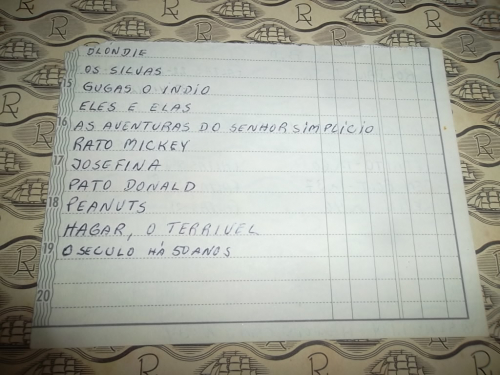 BLONDIE
OS SILVAS
15 GUGAS O INDIO
ELES E ELAS
16 AS AVENTURAS DO SENHOR SIMPLICIO
RATO MICKEY
17 JOSEFINA
PATO DONALD
18 PEANUTS
HAGAR, O TERRIVEL
19 O SECULO HÁ 50 ANOS
20
R
R
R
R
R